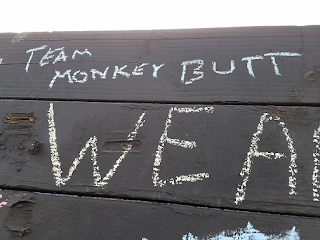 TEAM
MONKEY BUTT
WEA